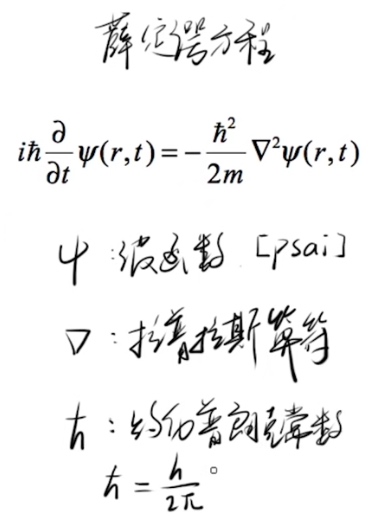 薛定谔方程
iħ ∂/∂t ψ(r,t) = − ħ²/2m ∇²ψ(r,t)
ψ：波函数 [psai]
∇：拉普拉斯算符
ħ：约化普朗克常数
ħ = h/2π